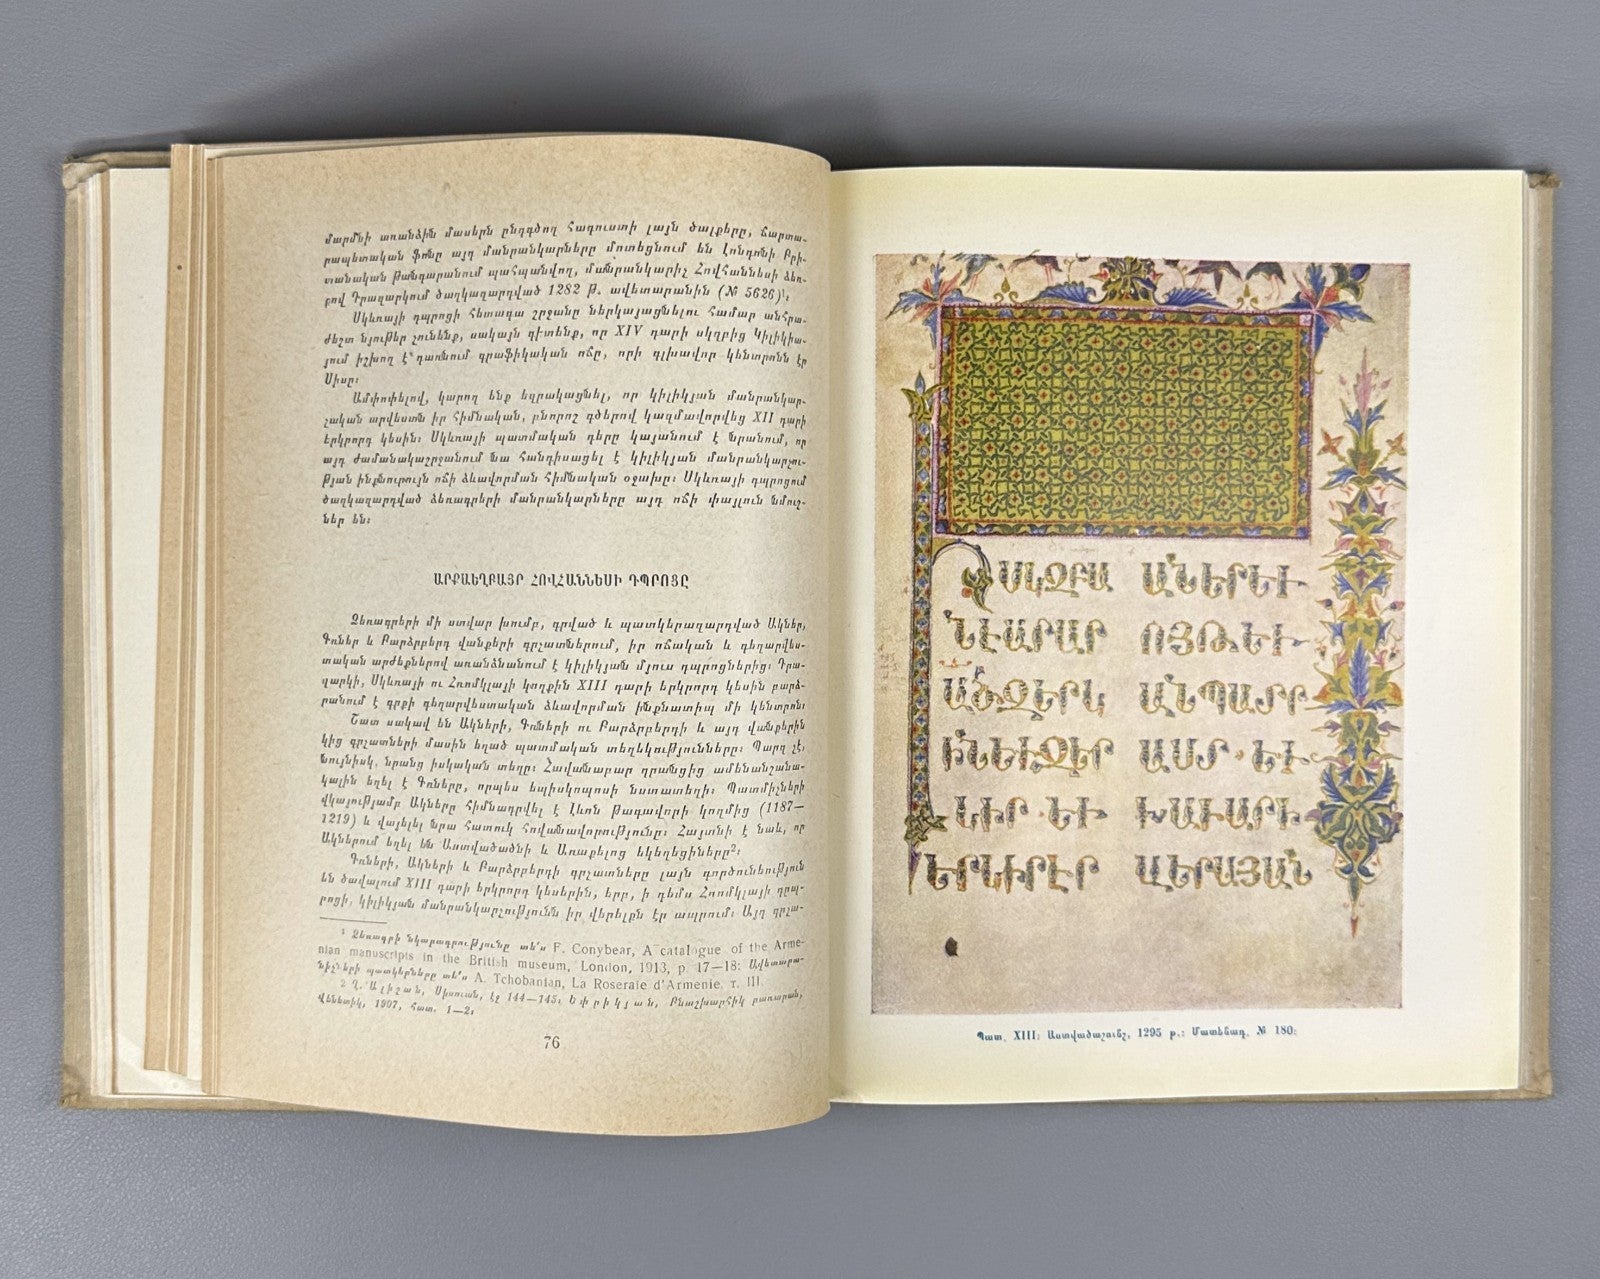 մարմնի առանձին մասերն ընդգծող հագուստի լայն ծալքերը, ճարտա-
րապետական ֆոնը այդ մանրանկարները մոտեցնում են Լոնդոնի Բրի-
տանական թանգարանում պահպանվող, մանրանկարիչ Հովհաննեսի ձեռ-
քով Դրազարկում ծաղկազարդված 1282 թ. ավետարանին (№ 5626)¹։
Սկևռայի դպրոցի հետագա շրջանը ներկայացնելու համար անհրա-
ժեշտ նյութեր չունենք, սակայն գիտենք, որ XIV դարի սկզբից Կիլիկիա-
յում իշխող է դառնում գրաֆիկական ոճը, որի գլխավոր կենտրոնն էր
Սիսը։
Ամփոփելով, կարող ենք եզրակացնել, որ կիլիկյան մանրանկար-
չական արվեստն իր հիմնական, բնորոշ գծերով կազմավորվեց XII դարի
երկրորդ կեսին։ Սկևռայի պատմական դերը կայանում է նրանում, որ
այդ ժամանակաշրջանում նա հանդիսացել է կիլիկյան մանրանկարչու-
թյան ինքնուրույն ոճի ձևավորման հիմնական օջախը։ Սկևռայի դպրոցում
ծաղկազարդված ձեռագրերի մանրանկարները այդ ոճի փայլուն նմուշ-
ներ են։
ԱՐՔԱԵՂԲԱՅՐ ՀՈՎՀԱՆՆԵՍԻ ԴՊՐՈՑԸ
Ձեռագրերի մի ստվար խումբ, գրված և պատկերազարդված Ակներ,
Գռներ և Բարձրբերդ վանքերի գրչատներում, իր ոճական և գեղարվես-
տական արժեքներով առանձնանում է կիլիկյան մյուս դպրոցներից։ Դրա-
զարկի, Սկևռայի ու Հռոմկլայի կողքին XIII դարի երկրորդ կեսին բարձ-
րանում է գրքի գեղարվեստական ձևավորման ինքնատիպ մի կենտրոն։
Շատ սակավ են Ակների, Գռների ու Բարձրբերդի և այդ վանքերին
կից գրչատների մասին եղած պատմական տեղեկությունները։ Պարզ չէ,
նույնիսկ, նրանց իսկական տեղը։ Հավանաբար դրանցից ամենանշանա-
կալին եղել է Գռները, որպես եպիսկոպոսի նստատեղի։ Պատմիչների
վկայությամբ Ակները հիմնադրվել է Լևոն թագավորի կողմից (1187—
1219) և վայելել նրա հատուկ հովանավորությունը։ Հայտնի է նաև, որ
Ակներում եղել են Աստվածածնի և Առաքելոց եկեղեցիները²։
Գռների, Ակների և Բարձրբերդի գրչատները լայն գործունեություն
են ծավալում XIII դարի երկրորդ կեսերին, երբ, ի դեմս Հռոմկլայի դպ-
րոցի, կիլիկյան մանրանկարչությունն իր վերելքն էր ապրում։ Այդ գրչա-
¹ Ձեռագրի նկարագրությունը տե՛ս F. Conybear, A catalogue of the Arme-
nian manuscripts in the British museum, London, 1913, p. 17—18։ Ավետարա-
նիչների պատկերները տե՛ս A. Tchobanian, La Roseraie d'Armenie, т. III.
² Ղ. Ալիշան, Սիսուան, էջ 144—145։ Եփրիկյան, Բնաշխարհիկ բառարան,
Վենետիկ, 1907, հատ. 1—2։
76
ՍԿԶԲԱ ԱՆԵՐԵՒ
ՆԼԷԱՐԱՐ
ԱՆՊԱՏՐ
ԱՍՏ ԵՒ
ՆԻՐ ԵՒ ԽԱՒԱՐԻ
ԵՐԿԻՐԷՐ ԱՆԵՐԱՅԱՆ
Պատ. XIII։ Աստվածաշունչ, 1295 թ.։ Մատենադ. № 180։